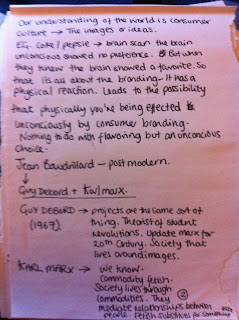 Our understanding of the world is consumer
culture → The images or ideas.
E.G. coke / pepsie → brain scan the brain
unconcious showed no preference. But when
they knew the brain showed a favorite. So
that its all about the branding - It has a
physical reaction. Leads to the possibility
that physically you're being effected
unconciously by consumer branding.
Nothing to do with flavoring but an unconcious
choice.
Jean Baudrillard - post modern.
Guy Debord + Karl marx.
GUY DEBORD → projects are the same sort of
(1967) thing. Theorist of student
revolutions. Update marx for
20th Century. Society that
lives around images.
KARL MARX → we know.
commodity fetish.
Society lives through
commodities. They
mediate relationships between
people. Fetish substitues for something